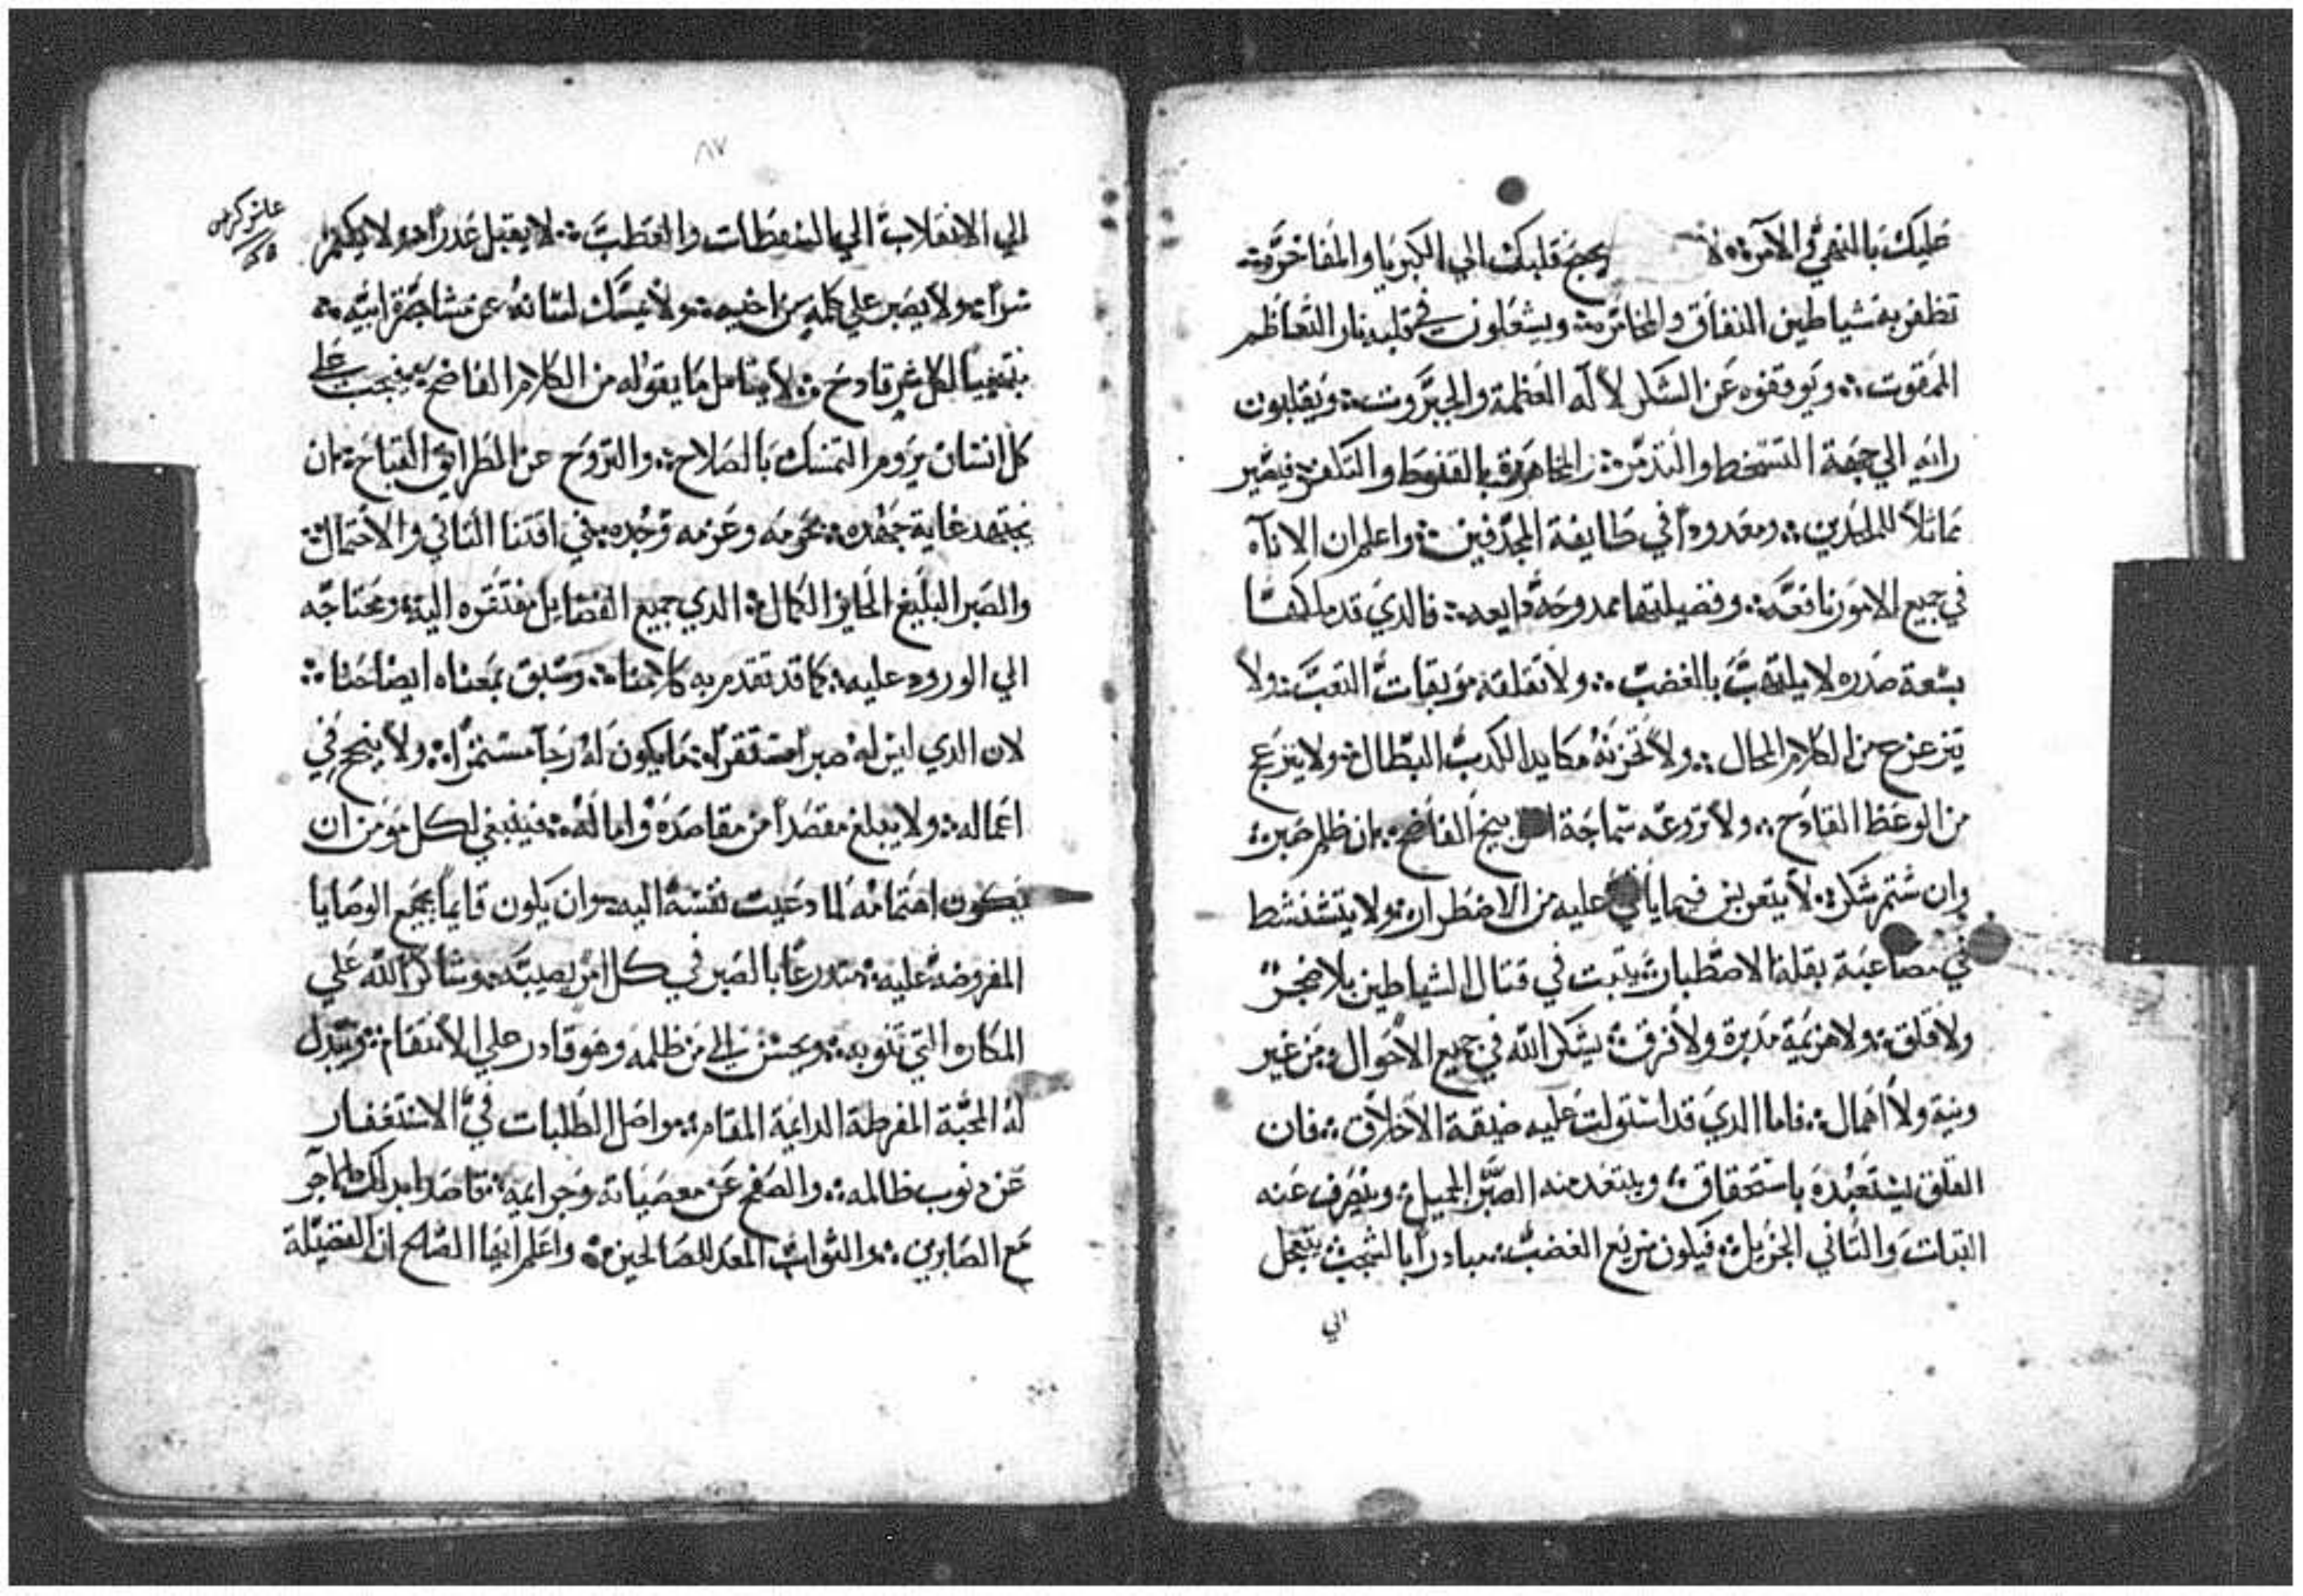 عليك بالنهي والامرة: لا يجمح قلبك الي الكبريا والمفاخرة:
تظفر به شياطين النفاق والمخاتره: ويشعلون في قلبه نار التعاظم
الممقوت: ويوقفوه عن الشكر لاله العظمة والجبروت: ويقلبون
رايه الي جهة التسخط والتدمر: والمجاهرة بالقنوط والتكفر: فيصير
مماثلاً للملحدين: ومعدوداً في طايفة المجدفين: واعلم ان الاناة
في جميع الامور نافعة: وفضيلتها ممدوحة رايعه: فالدي قد ملكها
بسعة صدره لا يلتهب بالغضب: ولا تقلقه موبقات التعب: ولا
يتزعزع من الكلام المحال: ولا تحزنه مكايد الكدب البطال: ولا ينزعج
من الوعظ القادح: ولا تردعه سماجة التوبيخ الفاضح: ان ظلم صبر:
وان شتم شكر: لا يتعربس فيما ياتي عليه من الاضطرار: ولا يتشنشط
في مصاعبه بقلة الاصطبار: يتبت في قتال الشياطين بلا ضجر
ولا قلق: ولا هزيمة مدبرة ولا فرق: يشكر الله في جميع الاحوال: من غير
ونية ولا اهمال: فاما الدي قد استولت عليه ضيقة الاخلاق: فان
القلق يستعبده باستحقاق: ويبتعد منه الصبر الجميل: وينصرف عنه
التبات والتاني الجزيل: فيكون سريع الغضب: مبادراً بالشجب: يتعجل
الي
٨٧
الي الانقلاب الي السقطات والعطب: لا يقبل عدراً: ولا يكتم
سراً: ولا يصبر علي كلمة من اخيه: ولا يمسك لسانه عن مشاجرة رابيه:
منتصباً لكل شر قادح: لا يتامل ما يقوله من الكلام الفاضح: فيجب علي
كل انسان يروم التمسك بالصلاح: والتزوح عن الطرايق القباح: ان
يجتهد غاية جهده: بحزمه وعزمه وجده: في اقتنا التاني والاحتمال:
والصبر البليغ الحايز الكمال: الدي جميع الفضايل مفتقره اليه: ومحتاجه
الي الورود عليه: كما قد تقدم به كلامنا: وسبق بمعناه ايضاحنا:
لان الدي ليس له صبراً مستقراً: ما يكون له رجآ مستمراً: ولا ينجح في
اعماله: ولا يبلغ مقصداً من مقاصده وامالَه: فينبغي لكل مومن ان
يكون اهتمامه لما دعيت نفسه اليه: وان يكون قايماً بجميع الوصايا
المفروضه عليه: متدرعاً بالصبر في كل امر يصيبه: وشاكراً لله علي
المكاره التي تنوبه: ويحسن الي من ظلمه وهو قادر علي الانتقام: ويبدل
له المحبة المفرطة الدايمة المقام: مواصل الطلبات في الاستغفار
عن دنوب ظالمه: والصفح عن معصياته وجرايمه: قاصداً بدالك الاجر
مع الصابرين: والتواب المعد للصالحين: واعلم ايها الصالح ان الفضيلة